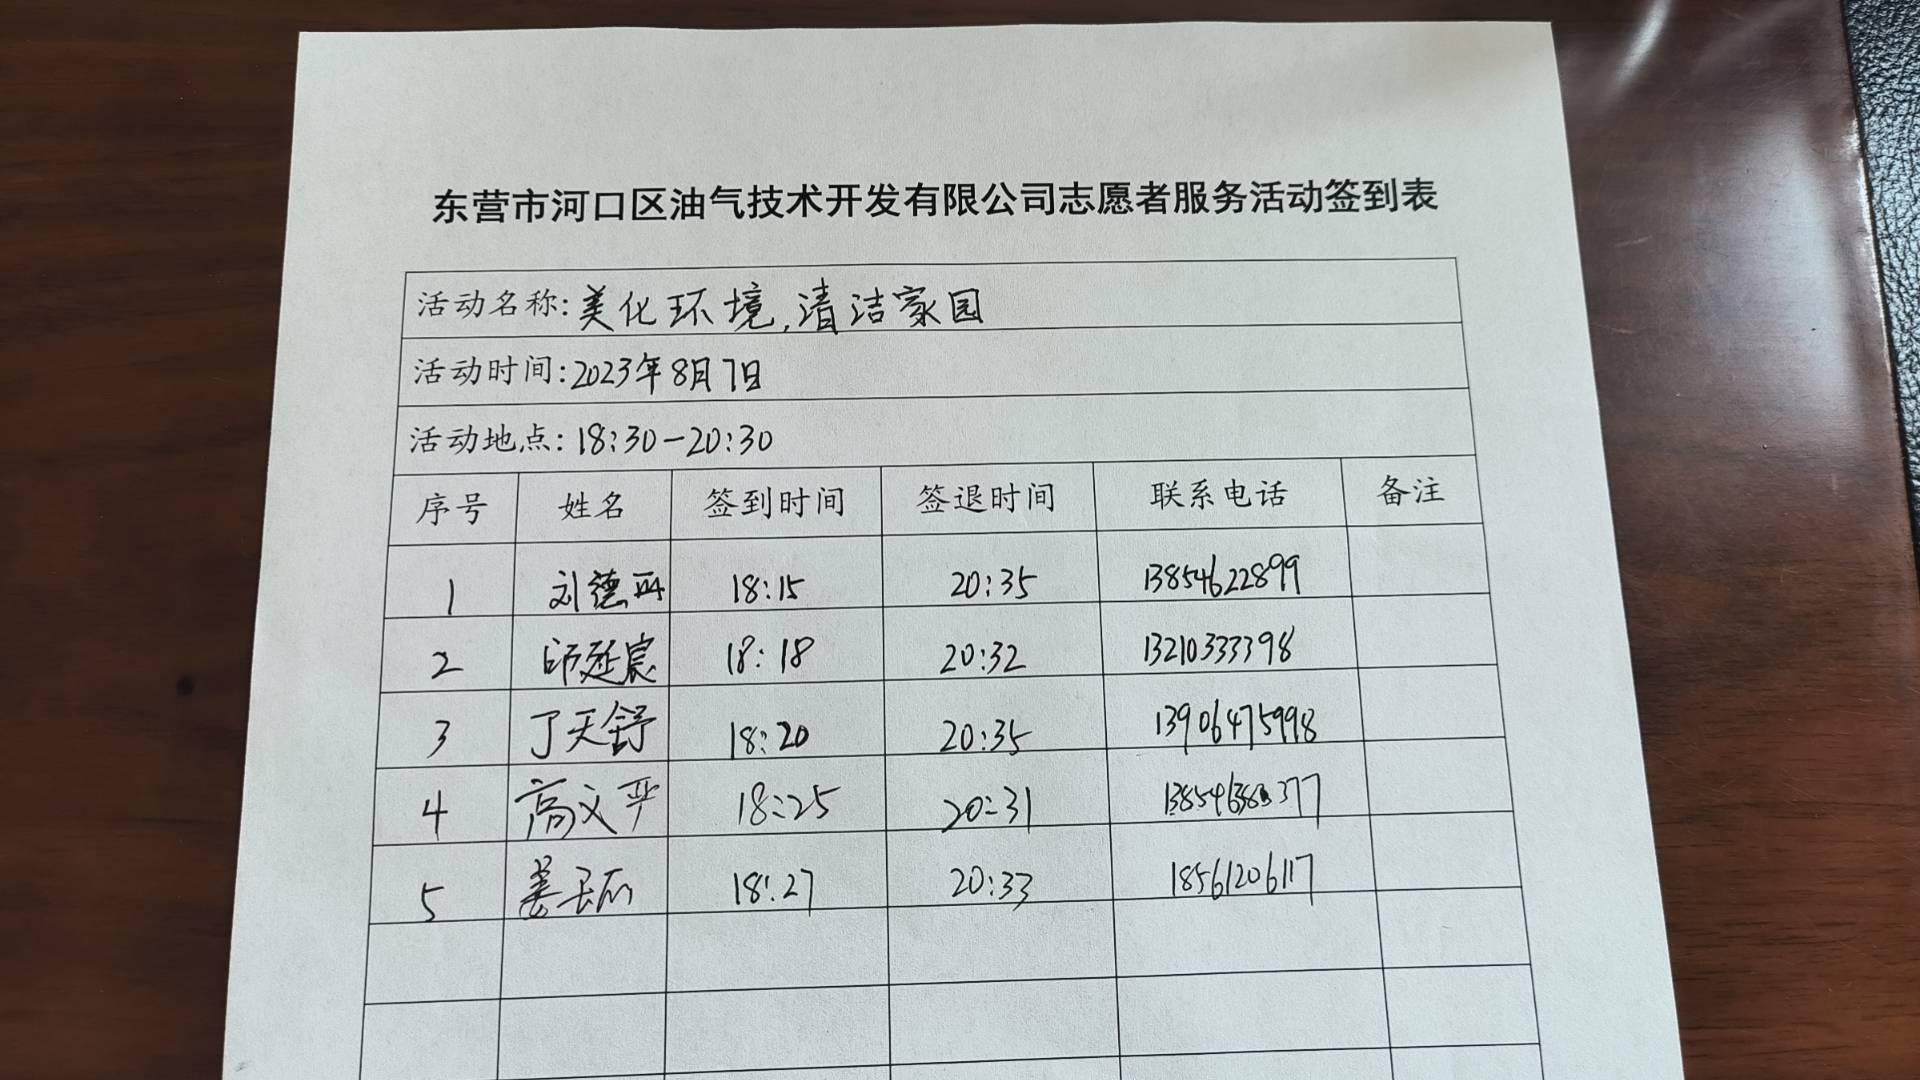 东营市河口区油气技术开发有限公司志愿者服务活动签到表
活动名称:美化环境,清洁家园
活动时间:2023年8月7日
活动地点:18:30-20:30
序号 姓名 签到时间 签退时间 联系电话 备注
1 刘德 18:15 20:35 13854622899
2 师延宸 18:18 20:32 13210333398
3 丁天舒 18:20 20:35 13906475998
4 高文平 18:25 20:31
5 姜 18:27 20:33 18561206117